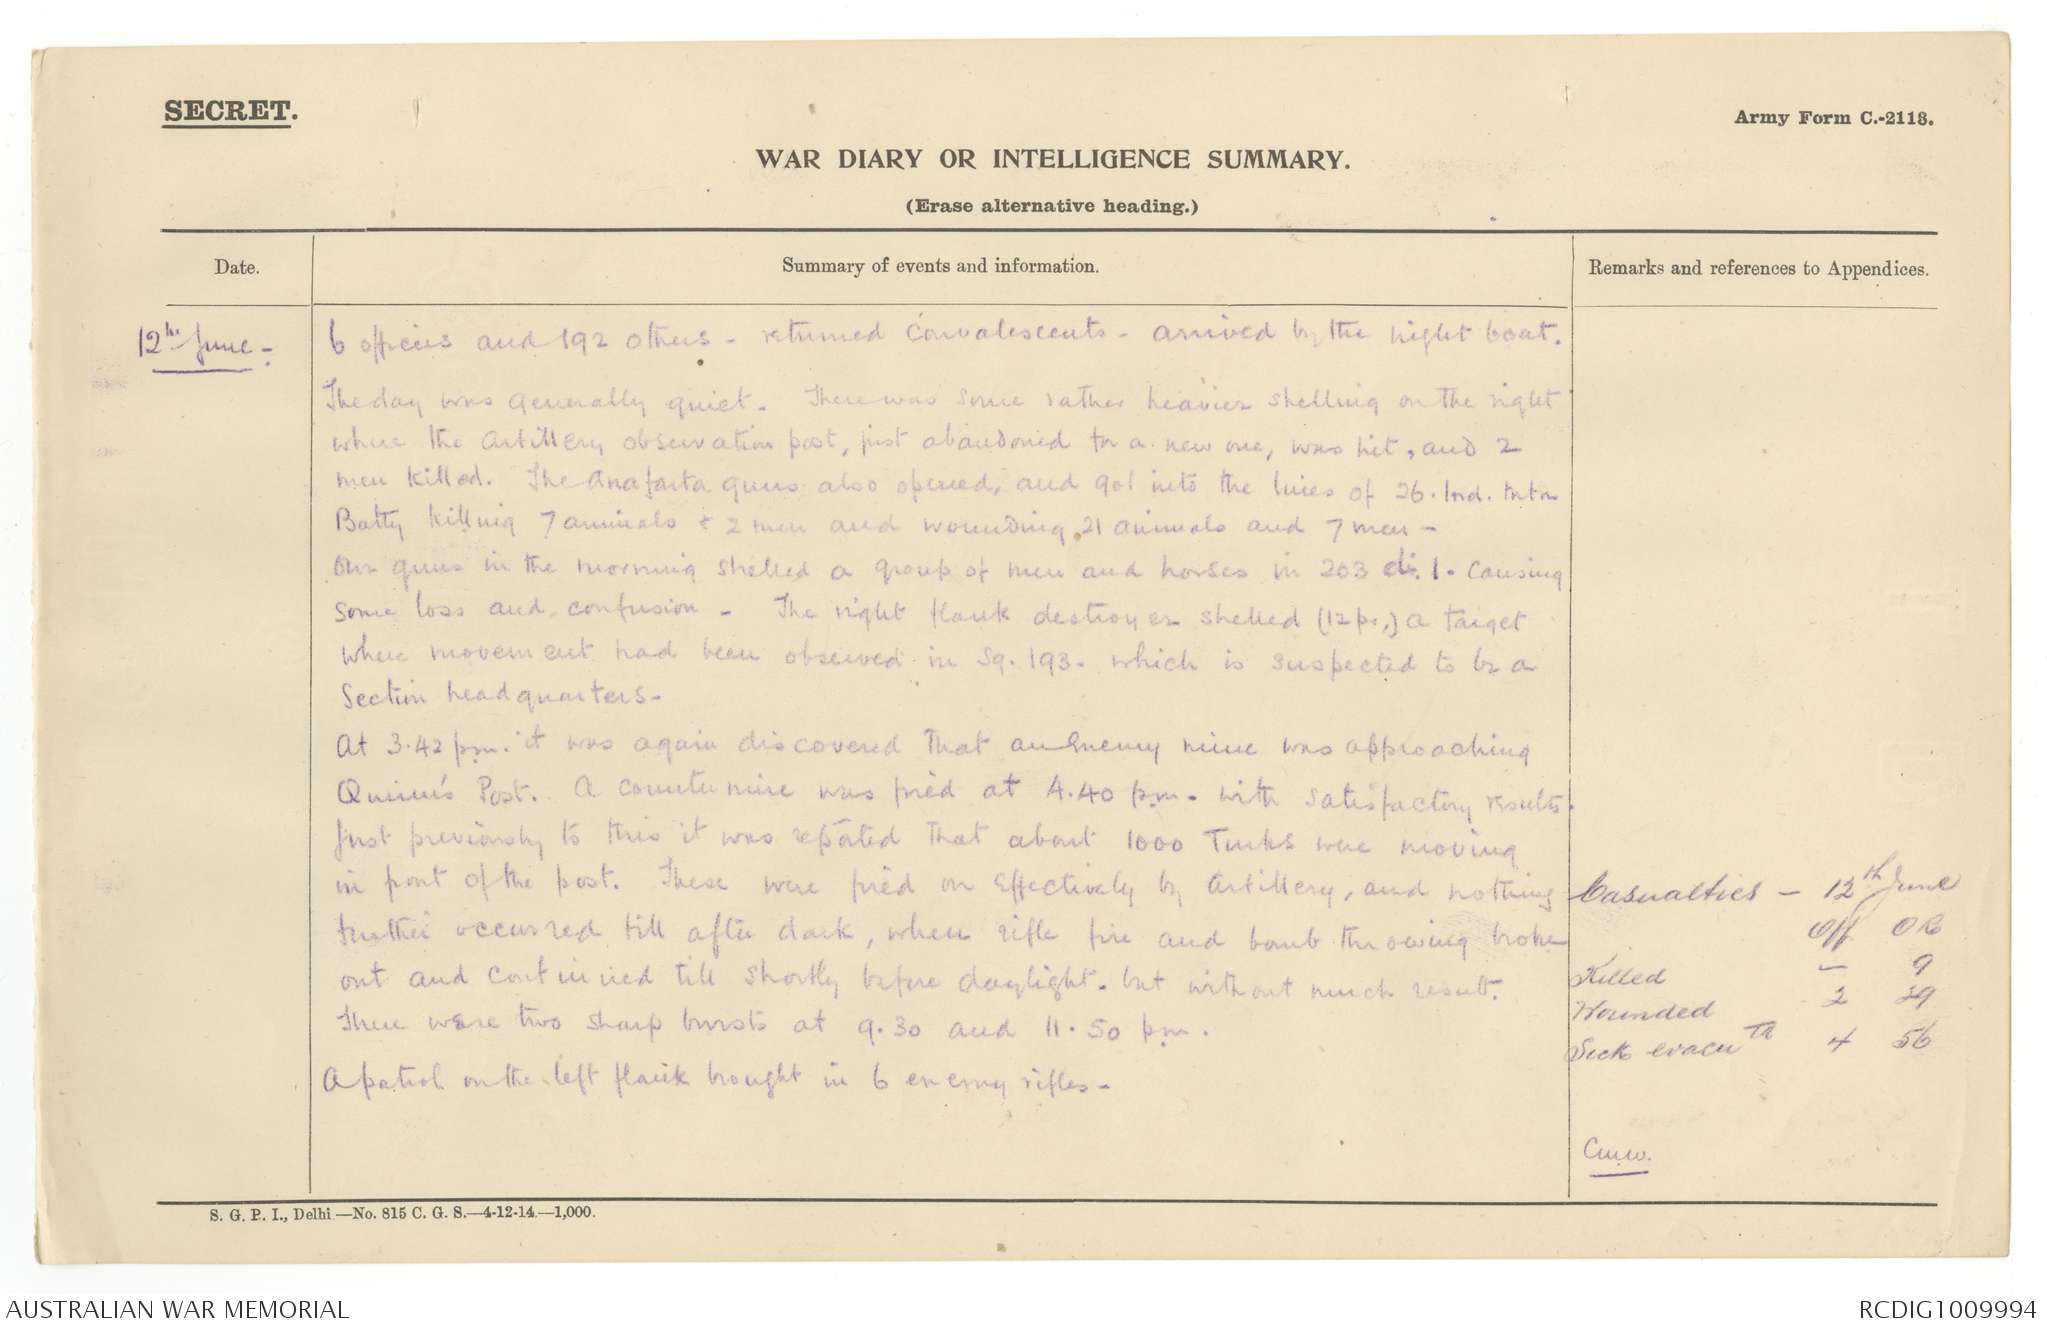 SECRET.
Army Form C.-2118.
WAR DIARY OR INTELLIGENCE SUMMARY.
(Erase alternative heading.)
Date.
Summary of events and information.
Remarks and references to Appendices.
12th June -
6 officers and 192 others - returned convalescents - arrived by the night boat.
The day was generally quiet. There was some rather heavier shelling on the right
where the artillery observation post, just abandoned for a new one, was hit, and 2
men killed. The Anafarta guns also opened, and got into the lines of 26. Ind. Mtn
Batty killing 7 animals & 2 men and wounding 21 animals and 7 men -
Our guns in the morning shelled a group of men and horses in 203 1. causing
some loss and confusion - The right flank destroyer shelled (12 pr.) a target
where movement had been observed in Sq. 193. which is suspected to be a
Section headquarters -
At 3.42 pm. it was again discovered that an Enemy mine was approaching
Quinn's Post. A counter mine was fired at 4.40 pm. with satisfactory results.
Just previously to this it was reported that about 1000 Turks were moving
in front of the post. These were fired on effectively by artillery, and nothing
further occurred till after dark, when rifle fire and bomb throwing broke
out and continued till shortly before daylight. but without much result.
There were two sharp bursts at 9.30 and 11.50 pm.
A patrol on the left flank brought in 6 enemy rifles -
Casualties - 12th June
Off OR
Killed - 9
Wounded 2 29
Sick evacu td 4 56
CMW.
S. G. P. I., Delhi—No. 815 C. G. S.—4-12-14—1,000.
AUSTRALIAN WAR MEMORIAL
RCDIG1009994